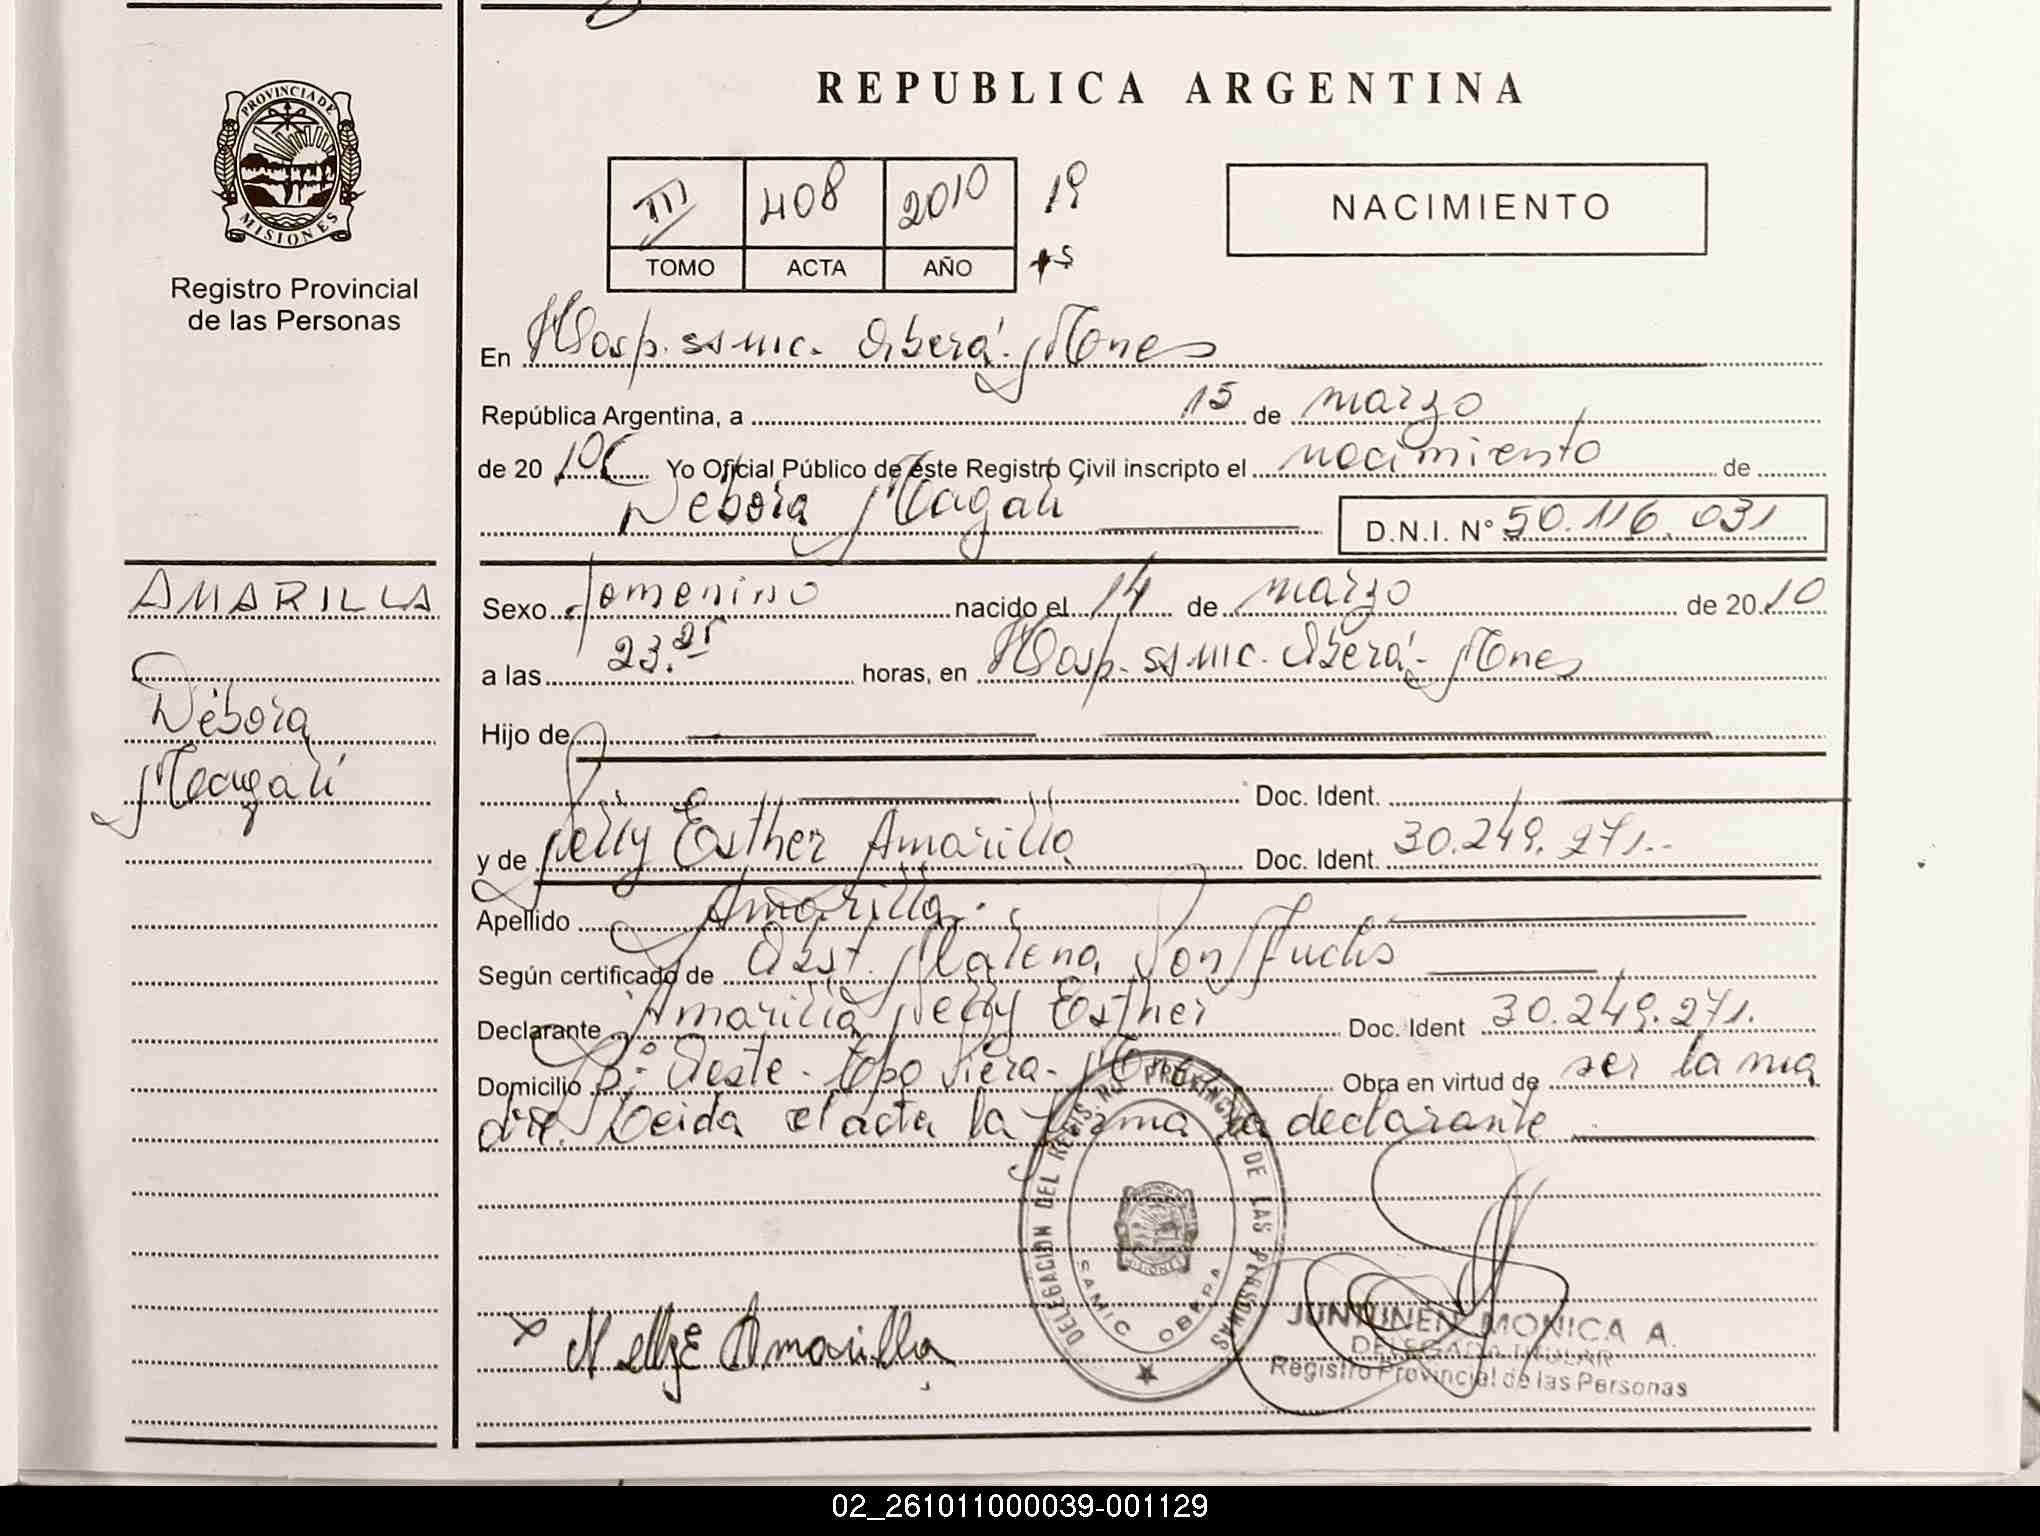 REPUBLICA ARGENTINA
PROVINCIA DE
MISIONES
Registro Provincial
de las Personas
III 408 2010 19
TOMO ACTA AÑO
NACIMIENTO
En Hosp. ss mic. Oberá - Mones
República Argentina, a 15 de marzo
de 20 10 Yo Oficial Público de este Registro Civil inscripto el nacimiento de
Débora Magalí D.N.I. N° 50.116.031
AMARILLA
Débora
Magalí
Sexo femenino nacido el 14 de marzo de 20 10
a las 23.25 horas, en Hosp. ss mic. Oberá - Mones
Hijo de
Doc. Ident.
y de Nelly Esther Amarilla Doc. Ident. 30.249.271.
Apellido Amarilla.
Según certificado de Obst. Marena Von Fuchs
Declarante Amarilla Nelly Esther Doc. Ident 30.249.271.
Domicilio B° Oeste - Cpo Viera - Mones Obra en virtud de ser la ma
dre. Leida el acta la firma la declarante
DELEGACION DEL REGISTRO PROVINCIAL DE LAS PERSONAS
MISIONES
SAMIC OBERA
x Nellye Amarilla
JUNTUNEN MONICA A.
DELEGADA TITULAR
Registro Provincial de las Personas
02_261011000039-001129